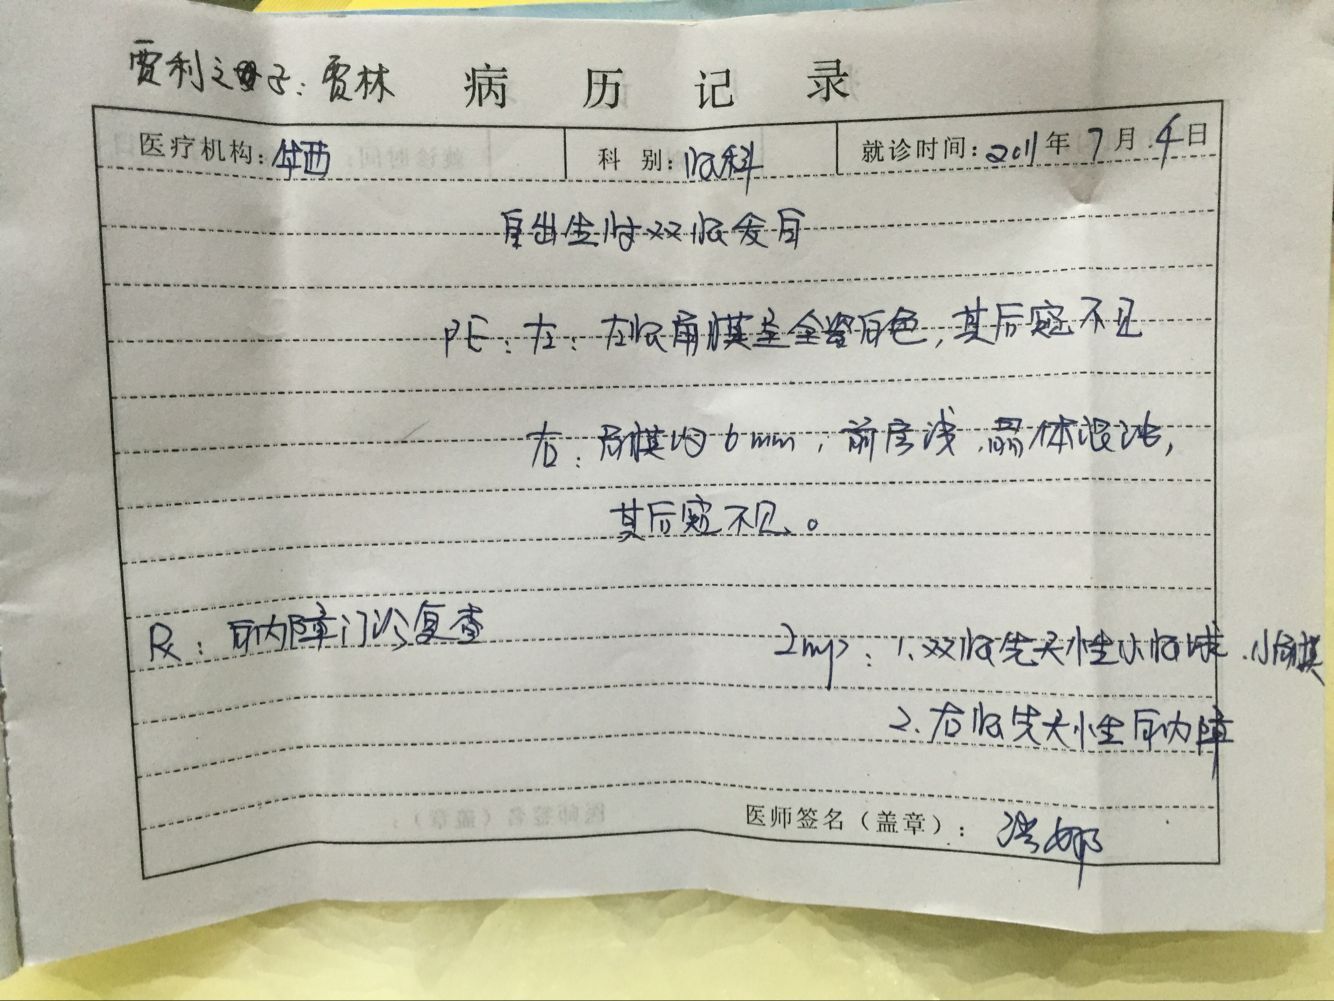 贾利之子：贾林 病历记录
医疗机构：华西 科别：眼科 就诊时间：2011年7月4日
自出生时双眼发白
PE：左：左眼角膜呈全瓷白色，其后窥不见
右：角膜约6mm，前房浅，晶体混浊，
其后窥不见。
Rx：白内障门诊复查
Imp：1.双眼先天性小眼球.小角膜
2.右眼先天性白内障
医师签名（盖章）：